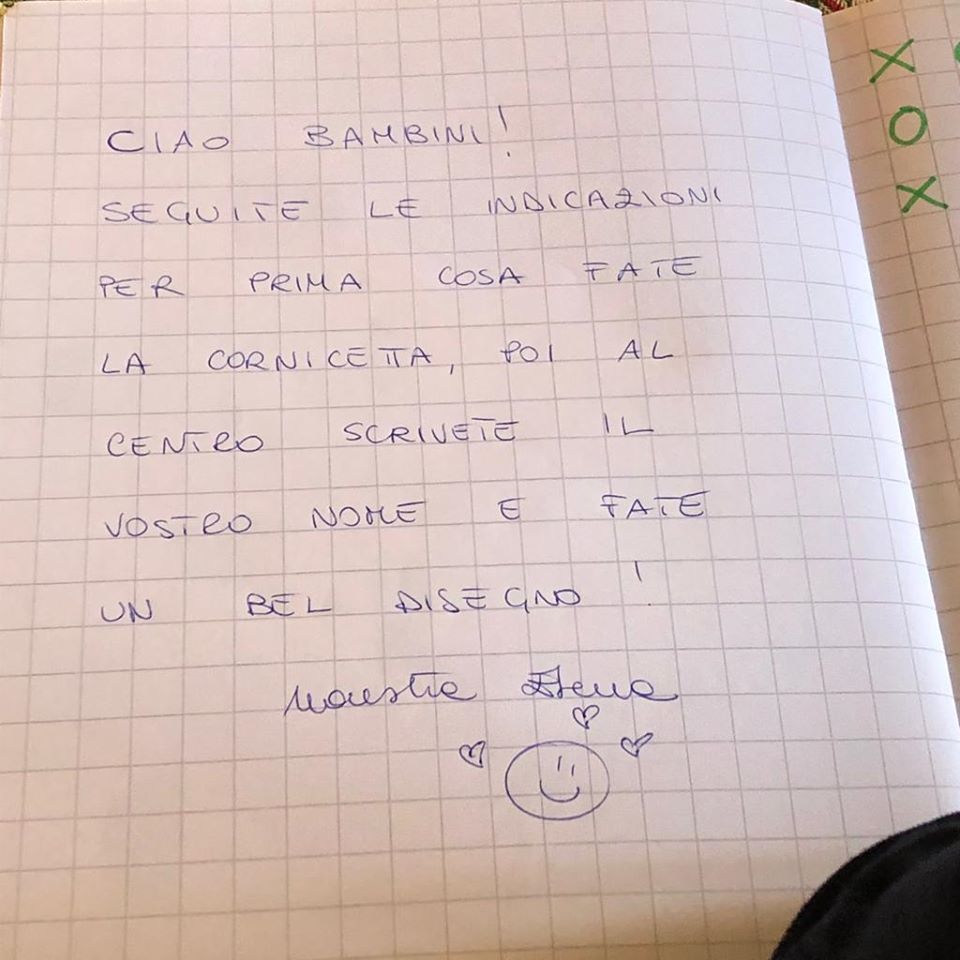 CIAO BAMBINI!
SEGUITE LE INDICAZIONI
PER PRIMA COSA FATE
LA CORNICETTA, POI AL
CENTRO SCRIVETE IL
VOSTRO NOME E FATE
UN BEL DISEGNO!
Maestra Elena
X
O
X